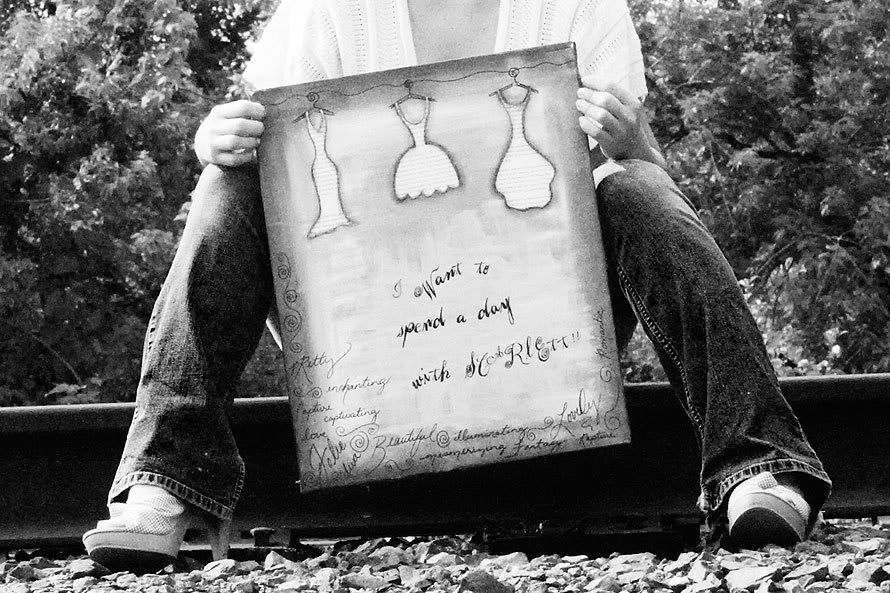 I Want to
spend a day
with SCARLETT!!
Pretty
enchanting
captivating
love
Beautiful
illuminating
Lovely
mesmerizing Fantasy
Romantic